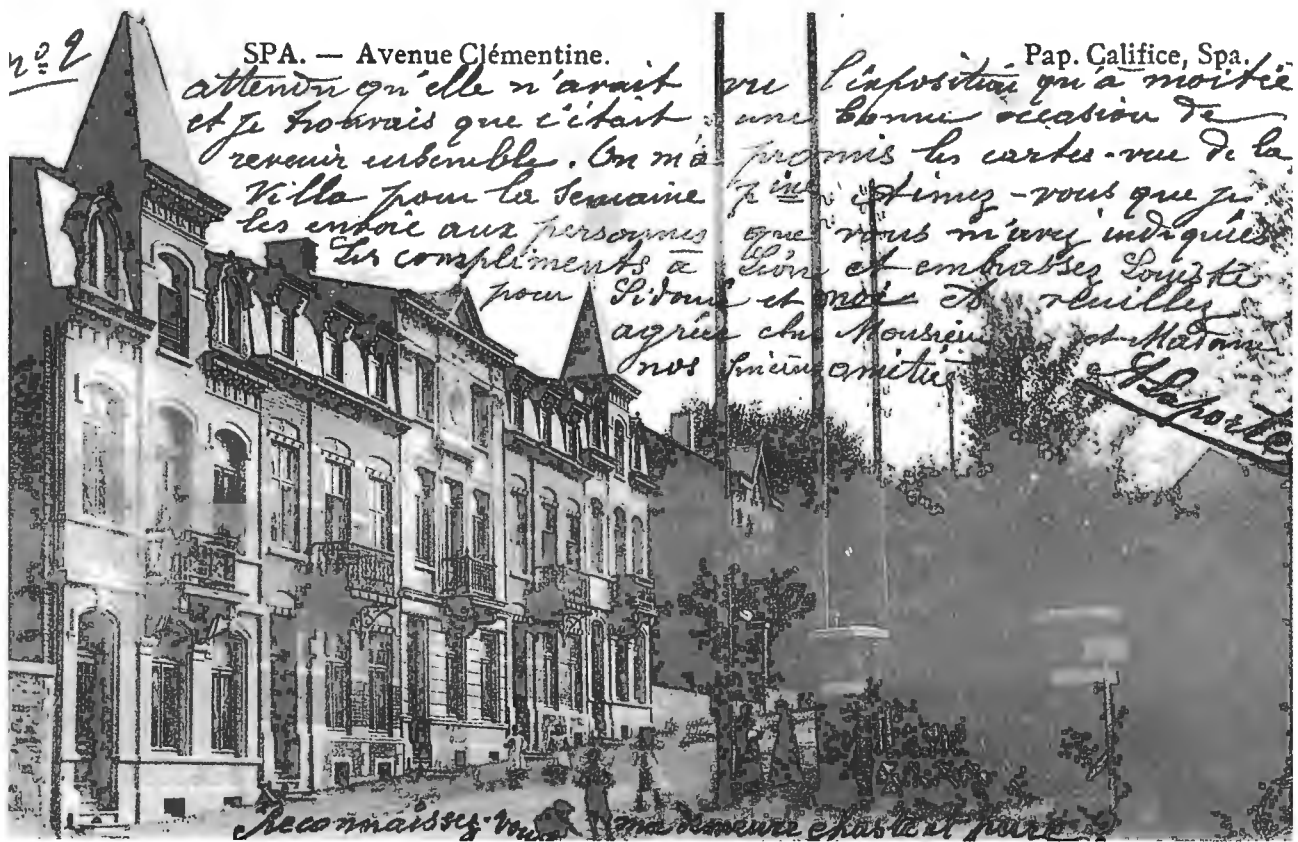 nº 2
SPA. — Avenue Clémentine.
Pap. Califice, Spa.
attendu qu'elle n'avait vu l'exposition qu'à moitié
et je trouvais que c'était une bonne occasion de
revenir ensemble. On m'a promis les cartes-vue de la
Villa pour la semaine - vous que je
les envoie aux personnes que vous m'avez indiquées
compliments à et embrassez
pour Sidonie et moi et veuillez
agréer cher Monsieur et Madame
nos sincères amitiés
Laporte
Reconnaissez-vous ma demeure chaste et pure